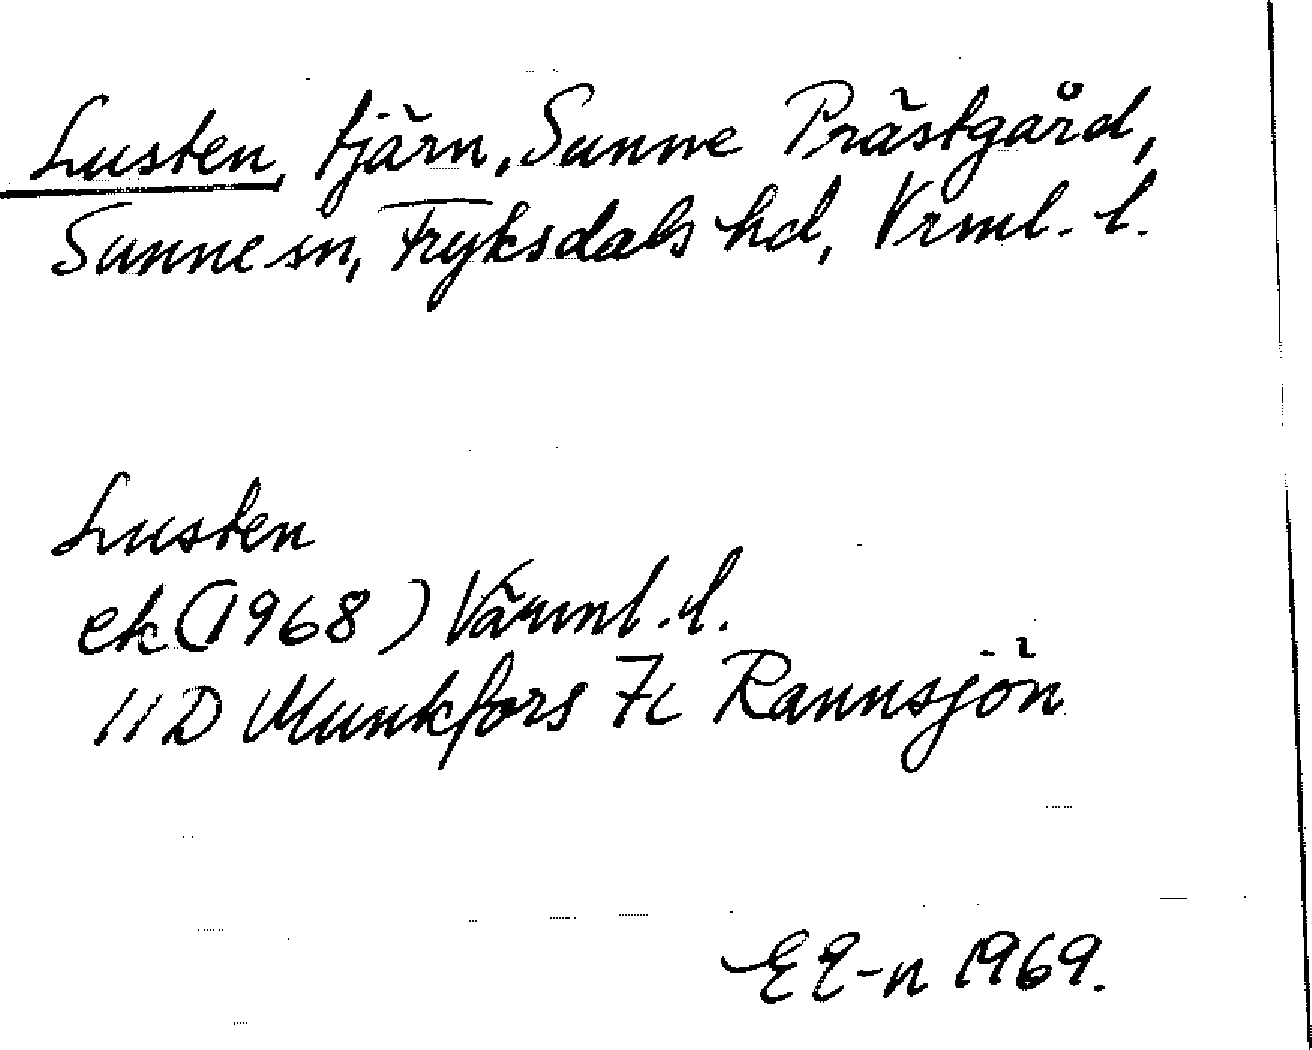 Lusten, tjärn, Sunne Prästgård,
Sunne sn, Fryksdals hd, Vrml. l.
Lusten
ek (1968) Värml. l.
11D Munkfors 7c Rannsjön
EE-n 1969.